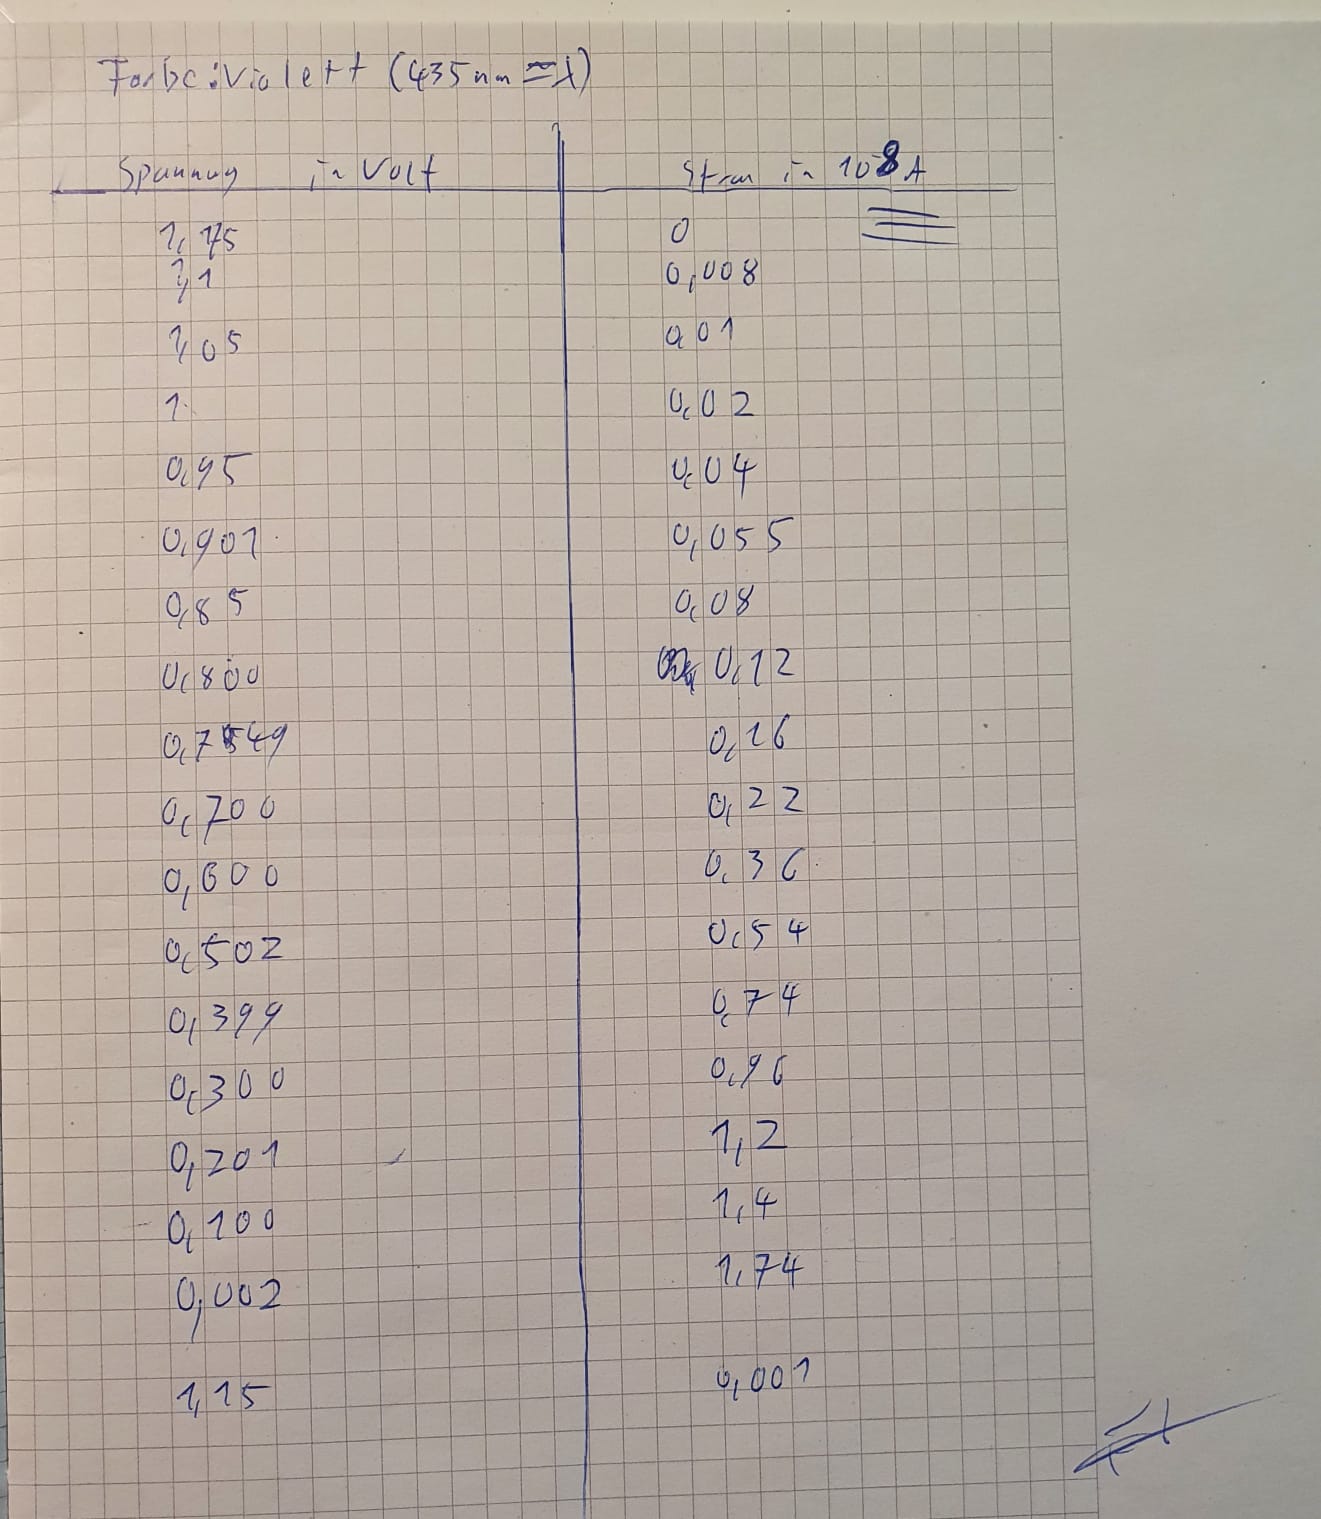 Farbe: Violett (435nm = λ)
Spannung in Volt Strom in 10^-8 A
1,175 0
1,1 0,008
1,05 0,01
1 0,02
0,95 0,04
0,901 0,055
0,85 0,08
0,800 0,12
0,7549 0,16
0,700 0,22
0,600 0,36
0,502 0,54
0,399 0,74
0,300 0,96
0,201 1,2
0,100 1,4
0,002 1,74
1,15 0,001